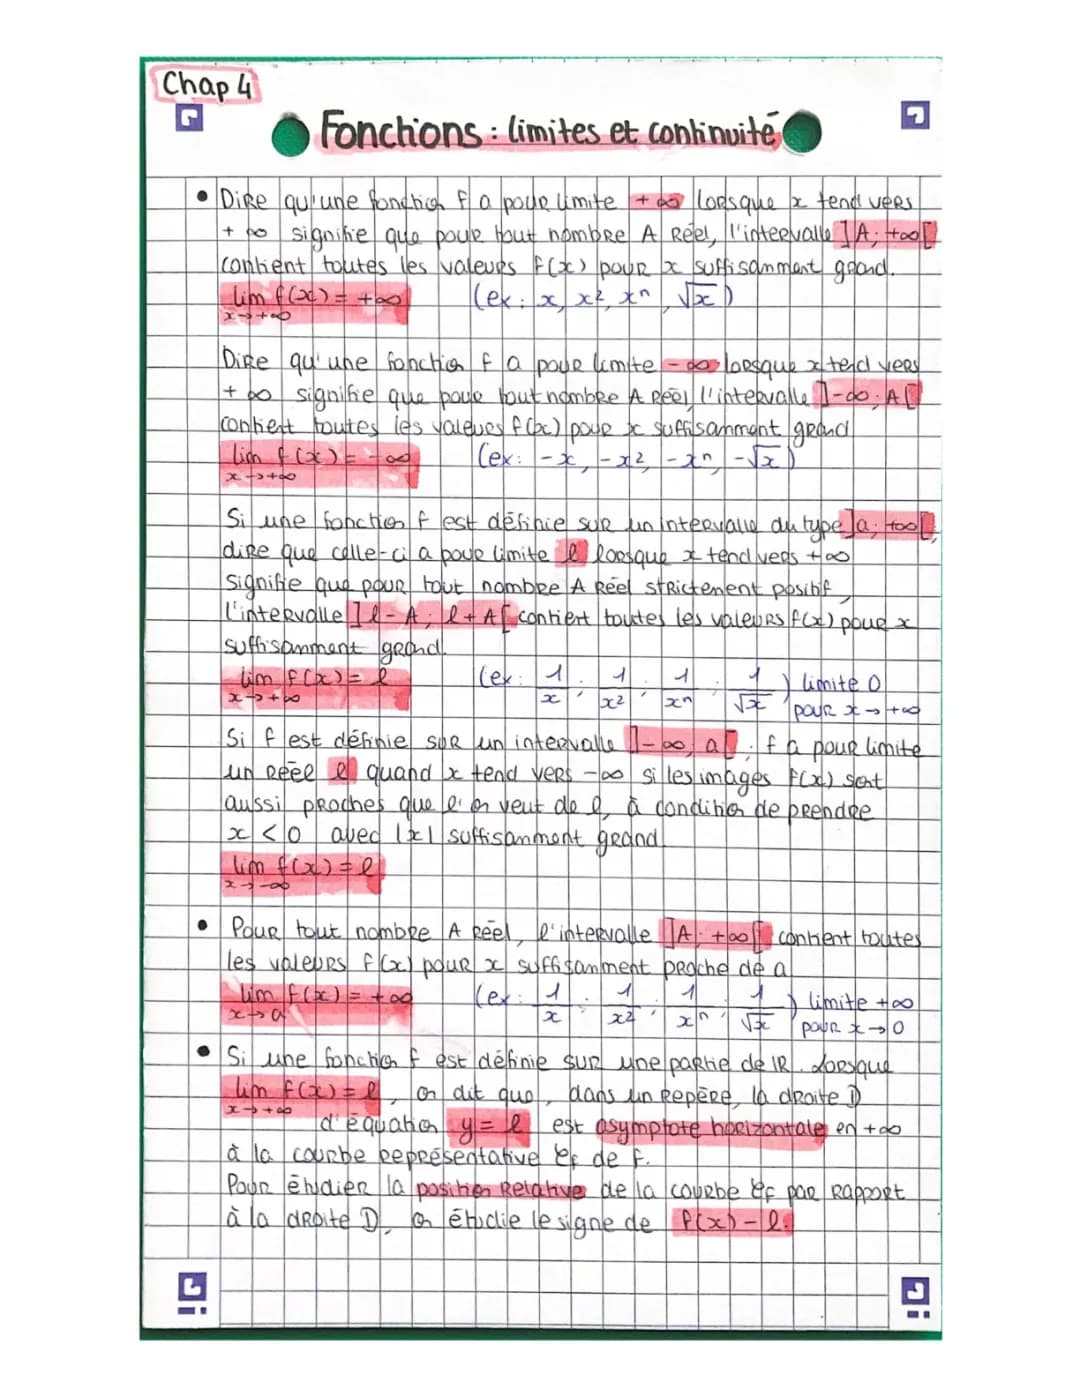 Chap 4
Fonctions : limites et continuité
• Dire qu'une fonction f a pour limite +∞ lorsque x tend vers
+∞ signifie que pour tout nombre A Réel, l'intervalle ]A; +∞[
contient toutes les valeurs f(x) pour x suffisamment grand.
lim f(x) = +∞ (ex: x, x², xⁿ, √x)
x→+∞
Dire qu'une fonction f a pour limite -∞ lorsque x tend vers
+∞ signifie que pour tout nombre A Réel, l'intervalle ]-∞; A[
contient toutes les valeurs f(x) pour x suffisamment grand
lim f(x) = -∞ (ex: -x, -x², -xⁿ, -√x)
x→+∞
Si une fonction f est définie sur un intervalle du type ]a; +∞[,
dire que celle-ci a pour limite l lorsque x tend vers +∞
signifie que pour tout nombre A Réel strictement positif,
l'intervalle ]l-A; l+A[ contient toutes les valeurs f(x) pour x
suffisamment grand.
lim f(x) = l (ex: 1/x ; 1/x² ; 1/xⁿ ; 1/√x) limite 0
x→+∞ pour x→+∞
Si f est définie sur un intervalle ]-∞; a[ : f a pour limite
un réel l quand x tend vers -∞ si les images f(x) sont
aussi proches que l'on veut de l, à condition de prendre
x < 0 avec |x| suffisamment grand.
lim f(x) = l
x→-∞
• Pour tout nombre A Réel, l'intervalle ]A; +∞[ contient toutes
les valeurs f(x) pour x suffisamment proche de a
lim f(x) = +∞ (ex: 1/x ; 1/x² ; 1/xⁿ ; 1/√x) limite +∞
x→a pour x→0
• Si une fonction f est définie sur une partie de IR. Lorsque
lim f(x) = l, on dit que, dans un Repère, la droite D
x→+∞
d'équation y = l est asymptote horizontale en +∞
à la courbe représentative Cf de f.
Pour étudier la position Relative de la courbe Cf par Rapport
à la droite D, on étudie le signe de f(x) - l.